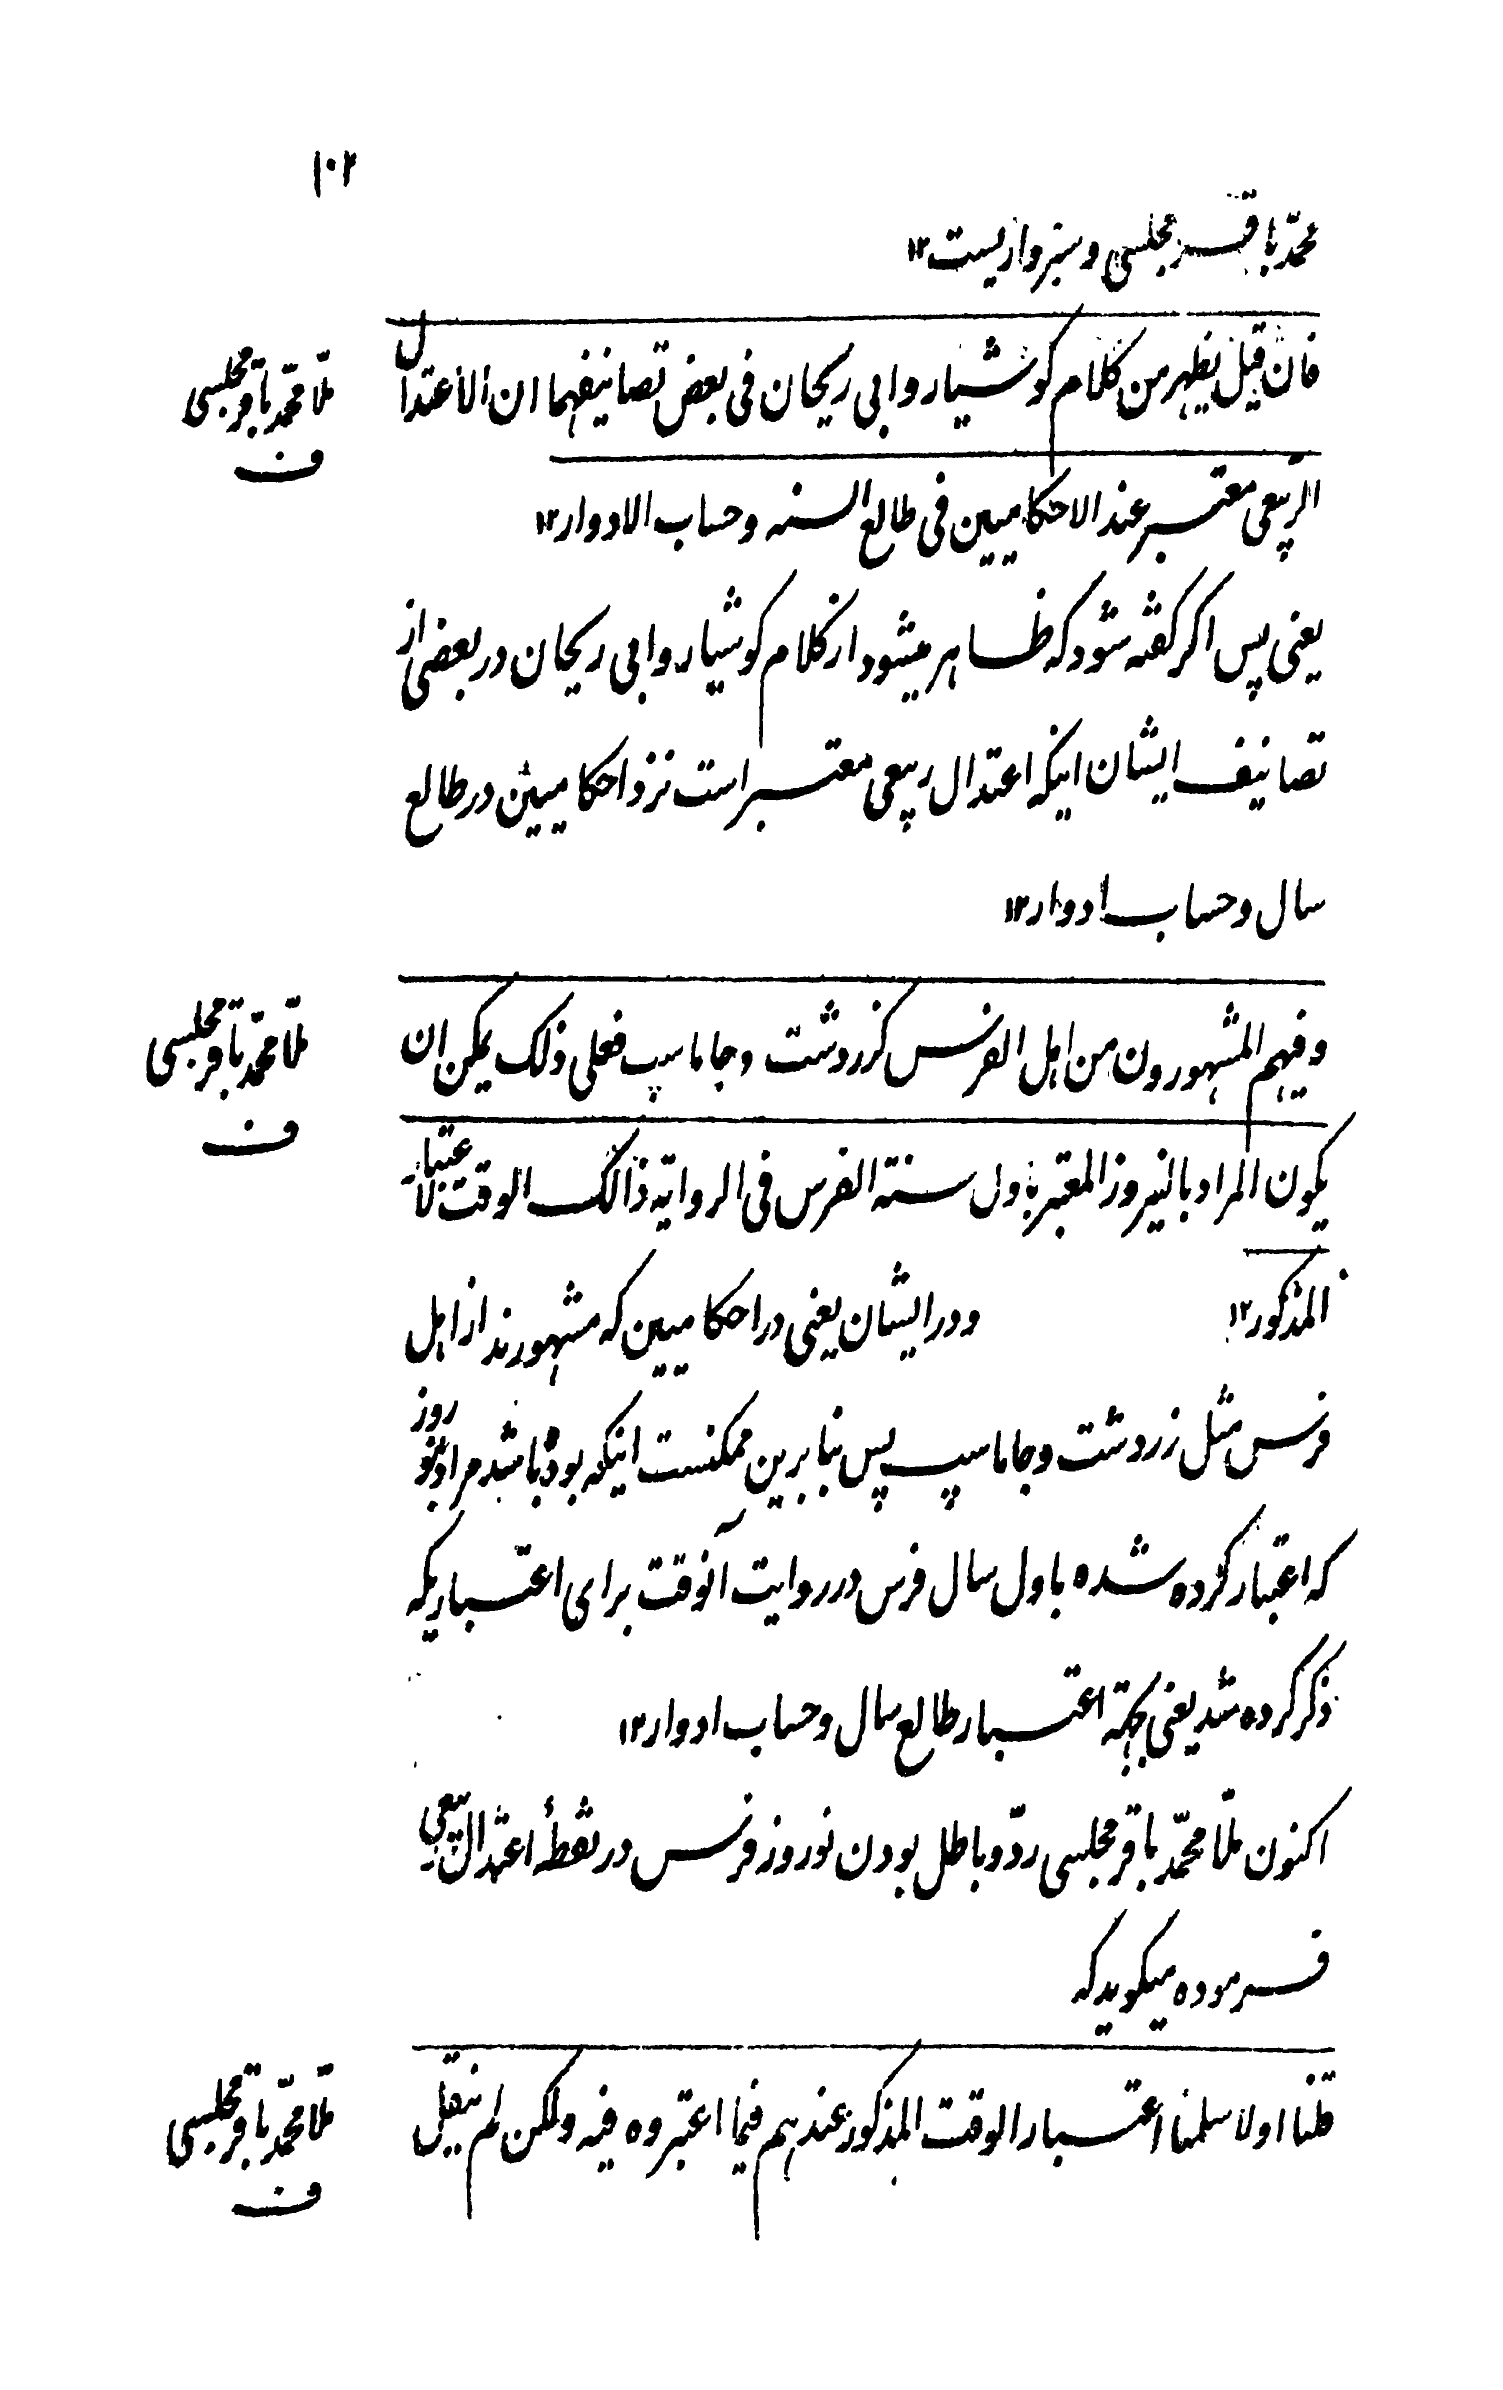 ۱۰۲
محمّد باقر مجلسی و سبزواریست ۱۲
فان قیل یظهر من کلام کوشیار و ابی ریحان فی بعض تصانیفهما ان الاعتدال
ملا محمّد باقر مجلسی
ف
الربیعی معتبر عند الاحکامیین فی طالع السنه و حساب الادوار ۱۲
یعنی پس اکر کفته شود که ظاهر میشود از کلام کوشیار و ابی ریحان در بعضی از
تصانیف ایشان اینکه اعتدال ربیعی معتبر است نزد احکامیین در طالع
سال و حساب ادوار ۱۲
و فیهم المشهورون من اهل الفرس کزردشت و جاماسپ فعلی ذلک یمکن ان
ملا محمّد باقر مجلسی
ف
یکون المراد بالنیروز المعتبر باول سنته الفرس فی الروایة ذالک الوقت لاعتبار
المذکور ۱۲ و در ایشان یعنی در احکامیین که مشهورند از اهل
فرس مثل زردشت و جاماسپ پس بنا برین ممکنست اینکه بوده باشد مراد بنوروز
که اعتبار کرده شده باول سال فرس در روایت آنوقت برای اعتباریکه
ذکر کرده شد یعنی بجهة اعتبار طالع سال و حساب ادوار ۱۲
اکنون ملا محمّد باقر مجلسی ردّ و باطل بودن نوروز فرس در نقطهٔ اعتدال ربیعی
فرموده میکوید که
قلنا اولا سلمنا اعتبار الوقت المذکور عندهم فیما اعتبروه فیه ولکن لم ینقل
ملا محمّد باقر مجلسی
ف